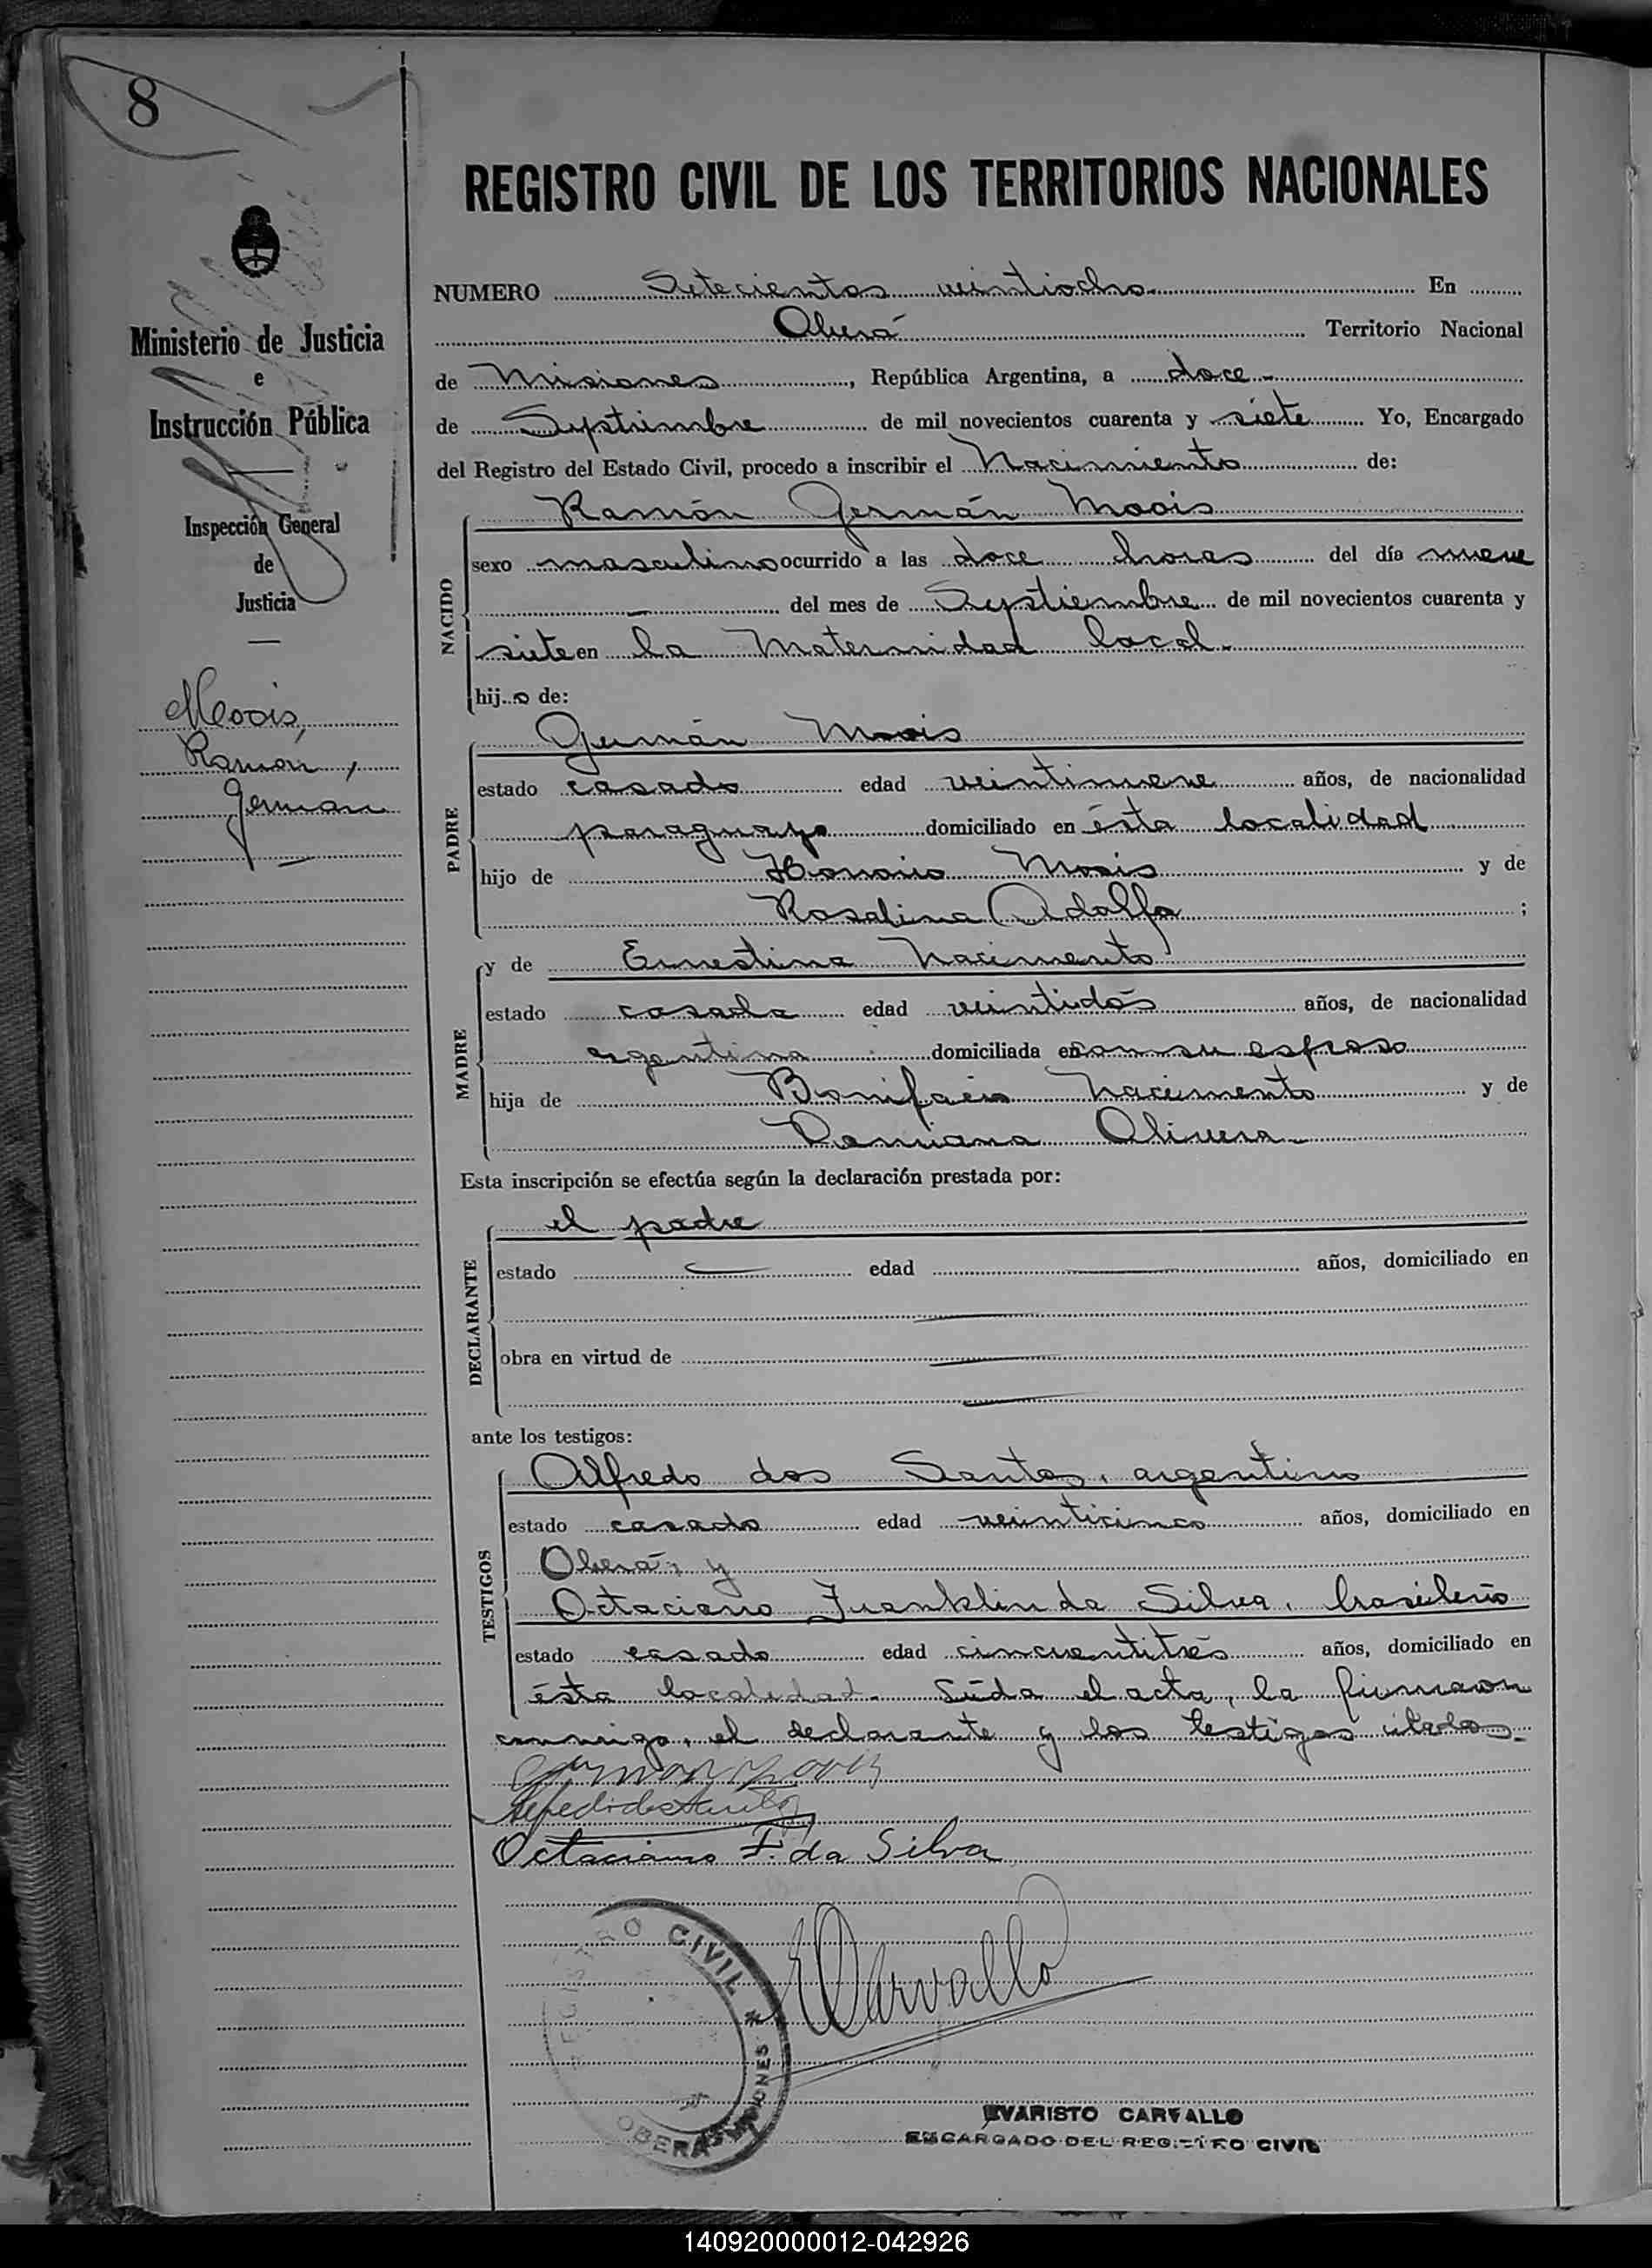 8
REGISTRO CIVIL DE LOS TERRITORIOS NACIONALES
Ministerio de Justicia
e
Instrucción Pública
Inspección General
de
Justicia
Moois,
Ramón,
Germán
NUMERO Setecientos veintiocho En
Oberá Territorio Nacional
de Misiones, República Argentina, a doce
de Septiembre de mil novecientos cuarenta y siete Yo, Encargado
del Registro del Estado Civil, procedo a inscribir el Nacimiento de:
NACIDO
Ramón Germán Moois
sexo masculino ocurrido a las doce horas del día nueve
del mes de Septiembre de mil novecientos cuarenta y
siete en la Maternidad local.
hijo de:
PADRE
Germán Moois
estado casado edad veintinueve años, de nacionalidad
paraguayo domiciliado en ésta localidad
hijo de Moois y de
Rosalina Adolfa ;
MADRE
y de Ernestina Nacimento
estado casada edad veintidós años, de nacionalidad
argentina domiciliada en con su esposo
hija de Bonifacio Nacimento y de
Damiana Olivera
Esta inscripción se efectúa según la declaración prestada por:
DECLARANTE
el padre
estado edad años, domiciliado en
obra en virtud de
ante los testigos:
TESTIGOS
Alfredo dos Santos, argentino
estado casado edad veinticinco años, domiciliado en
Oberá, y
Octaciano Franklin da Silva, brasileño
estado casado edad cincuentitrés años, domiciliado en
ésta localidad. Leída el acta, la firmaron
conmigo, el declarante y los testigos citados.
German Moois
Alfredo dos Santos
Octaciano F. da Silva
REGISTRO CIVIL * OBERA MISIONES
ECarvallo
EVARISTO CARVALLO
ENCARGADO DEL REGISTRO CIVIL
140920000012-042926